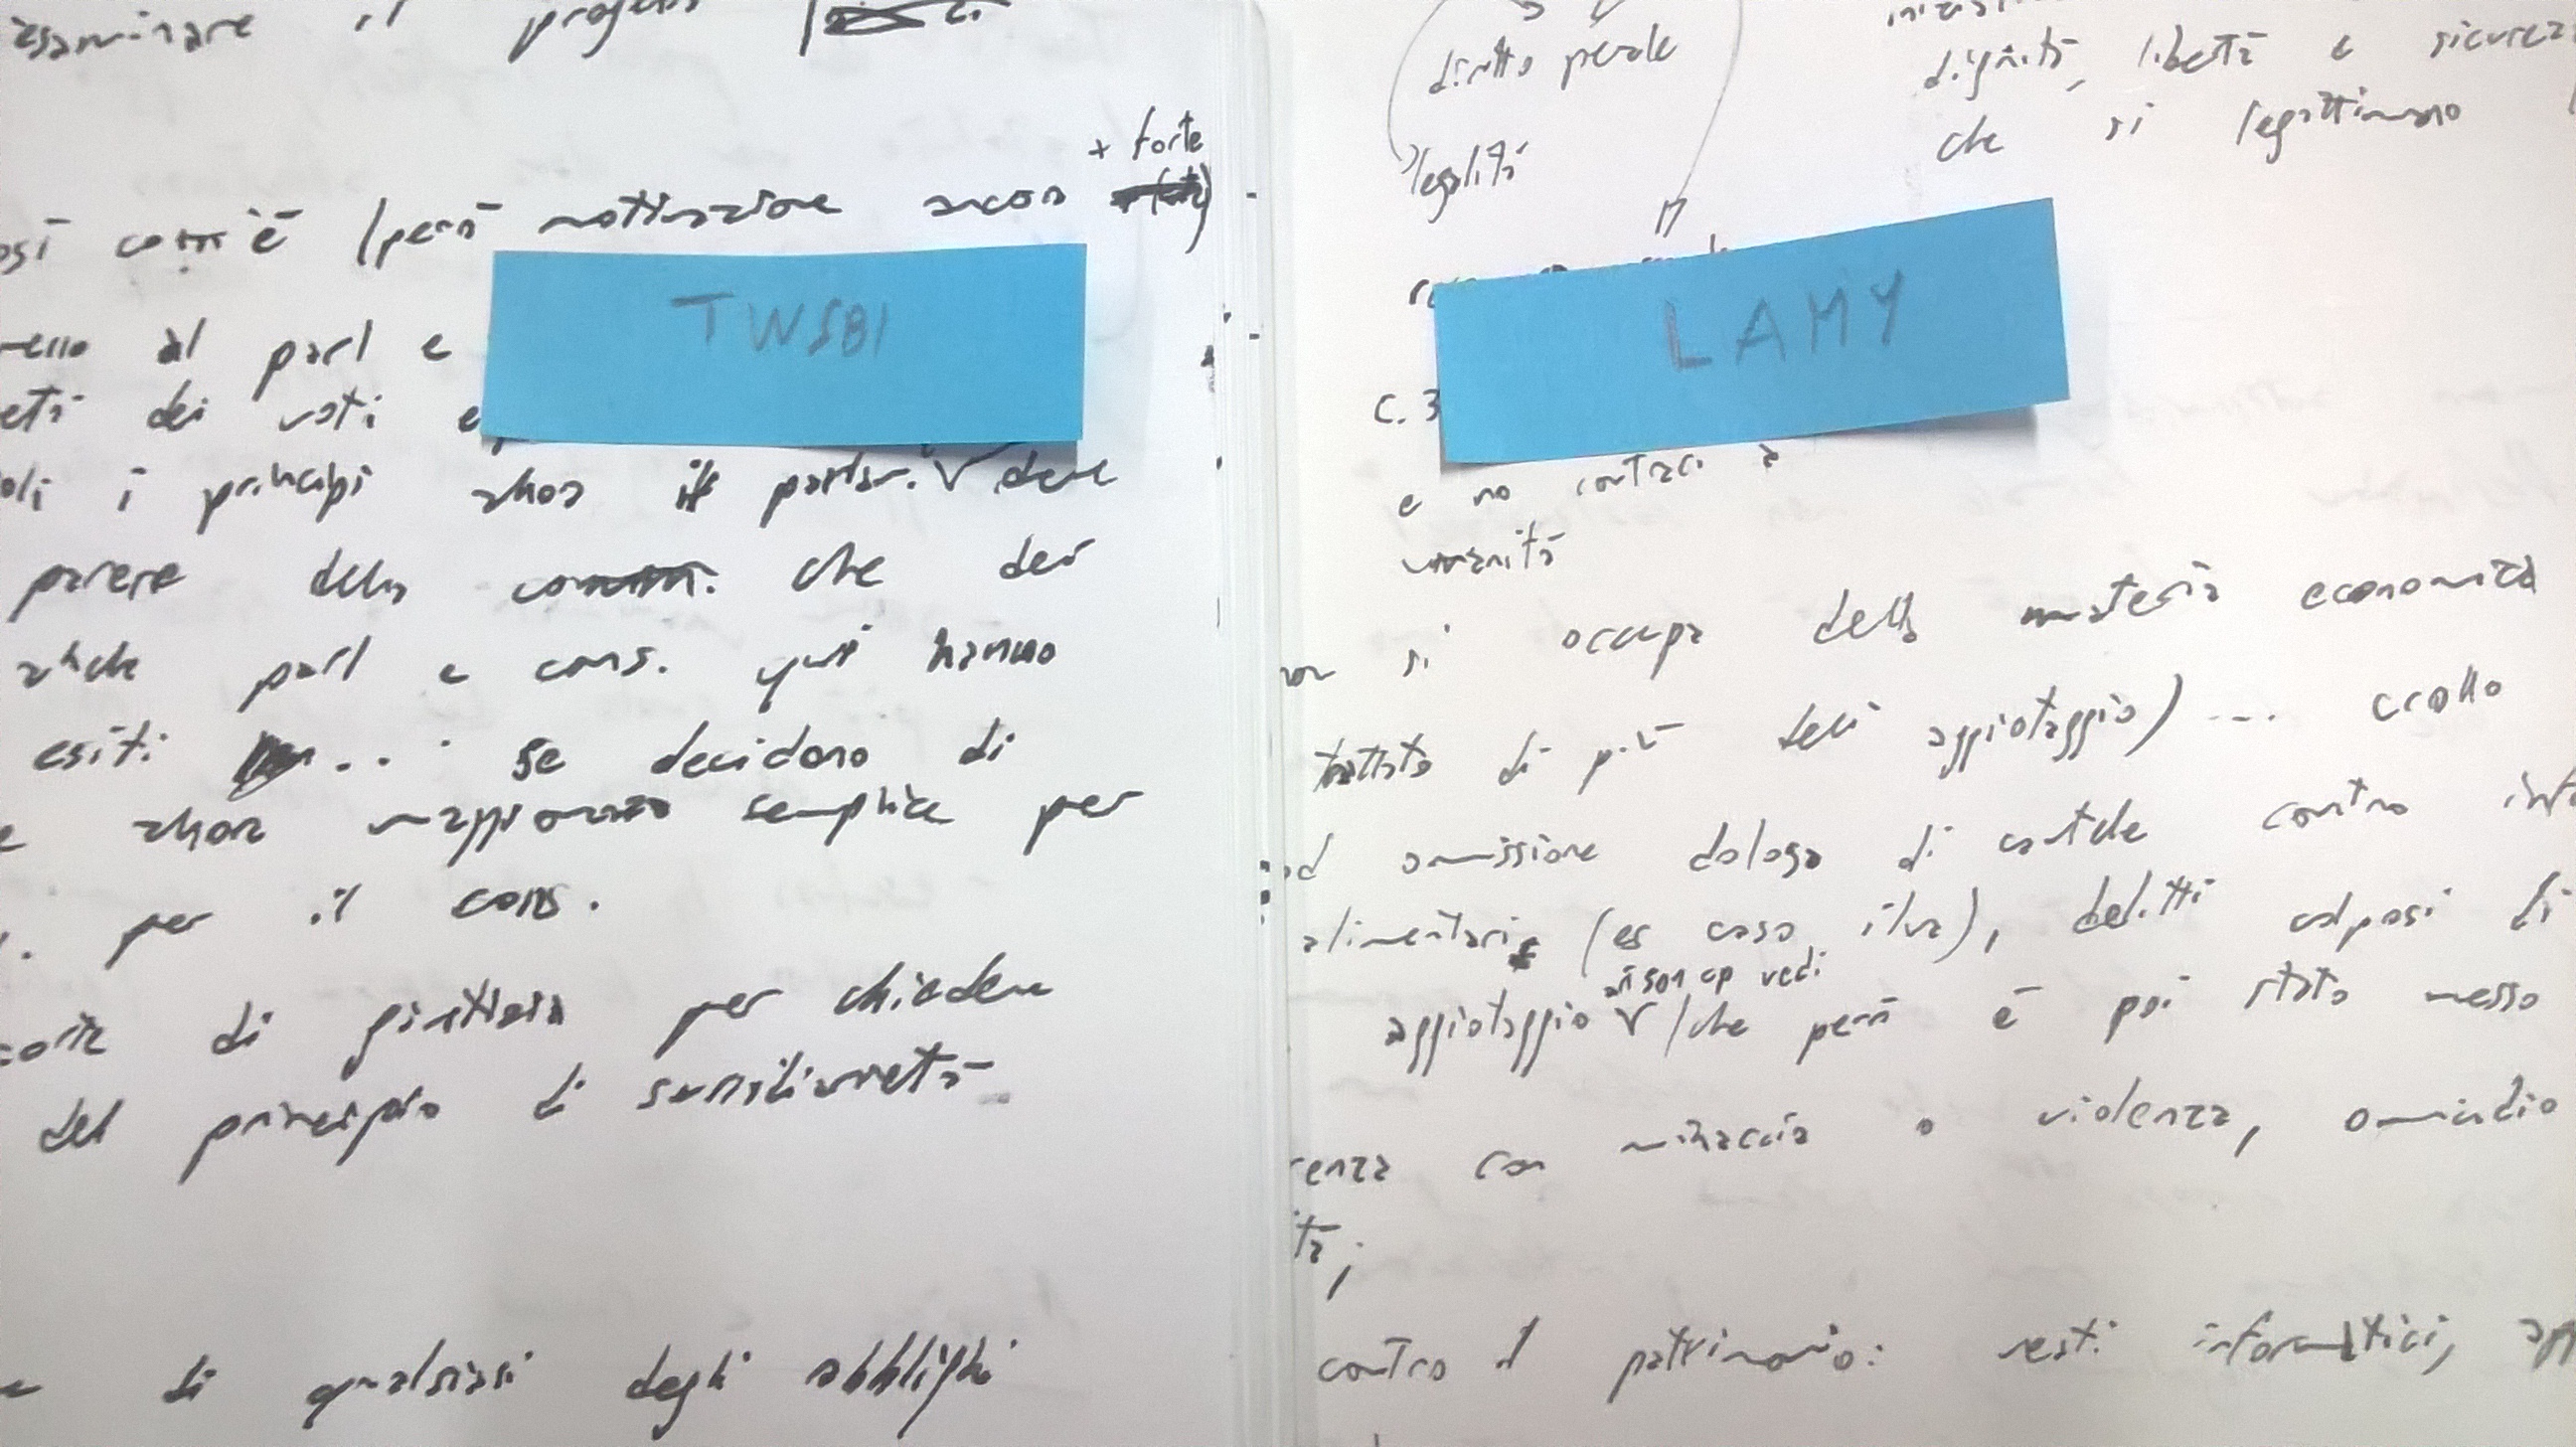 esaminare il
+ forte
così com'è (però motivazione ancora
TWSBI
al parl e
dei voti
i principi allora il parlam. deve
parere della comm. che dei
anche parl e cons. qui hanno
esiti ... se decidono di
allora maggioranza semplice per
per il cons.
corte di giustizia per chiedere
del principio di sussidiarietà
di qualsiasi degli obblighi
diritto penale
legalità
dignità, libertà e sicurezza
che si legittimano
LAMY
c. 3
e no contrari a
umanità
non si occupa della materia economica
trattato di più dell' aggiotaggio) ... crollo
od omissione dolosa di cautele contro
alimentari (es caso ilva), delitti colposi di
anson op vedi
aggiotaggio (che però è poi stato messo
con minaccia o violenza, omicidio
contro il patrimonio: reati informatici,